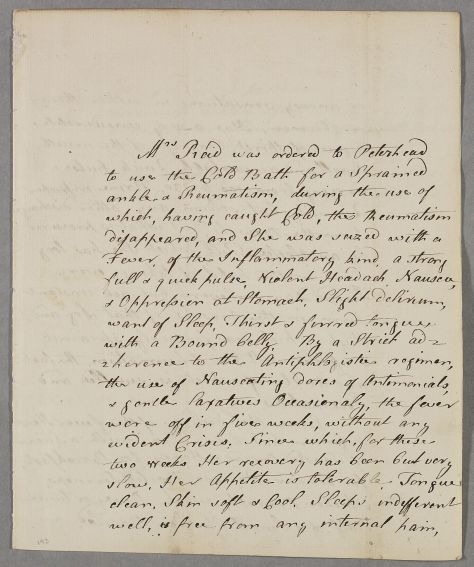 Mrs Reid was ordered to Peterhead
to use the Cold Bath for a Sprained
ankle & Rheumatism, during the use of
which, having caught Cold, the Rheumatism
disappeared, and She was seized with a
Fever, of the Inflammatory kind, a strong
full & quick pulse, Violent Headach, Nausea,
& Oppression at Stomach, Slight delirium,
want of Sleep, Thirst & furred tongue
with a Bound belly. By a Strict ad=
=herence to the Antiphlogistic regimen,
the use of Nauseating doses of Antimonials,
& gentle Laxatives Occasionaly, the fever
wore off in five weeks, without any
evident Crisis, Since which, for these
two weeks Her recovery has been but very
slow, Her Appetite is tolerable, Tongue
clean, Skin soft & Cool, Sleeps indifferent
well, is free from any internal pain,